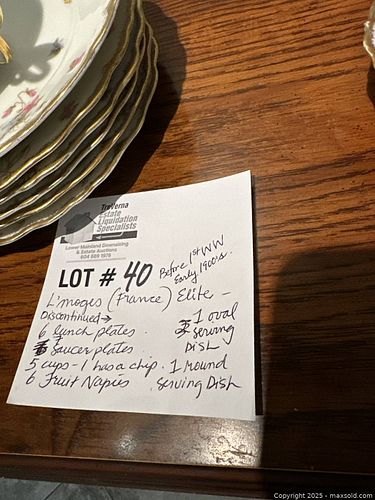 TreVerna
Estate
Liquidation
Specialists
Lower Mainland Downsizing
& Estate Auctions
604 889 1976
LOT # 40
Before 1st WW
Early 1900's.
Limoges (France) Elite -
Discontinued →
6 lunch plates.
saucer plates
5 cups - 1 has a chip.
6 Fruit Napies
1 oval
serving
Dish
1 round
serving Dish
Copyright 2025 - maxsold.com